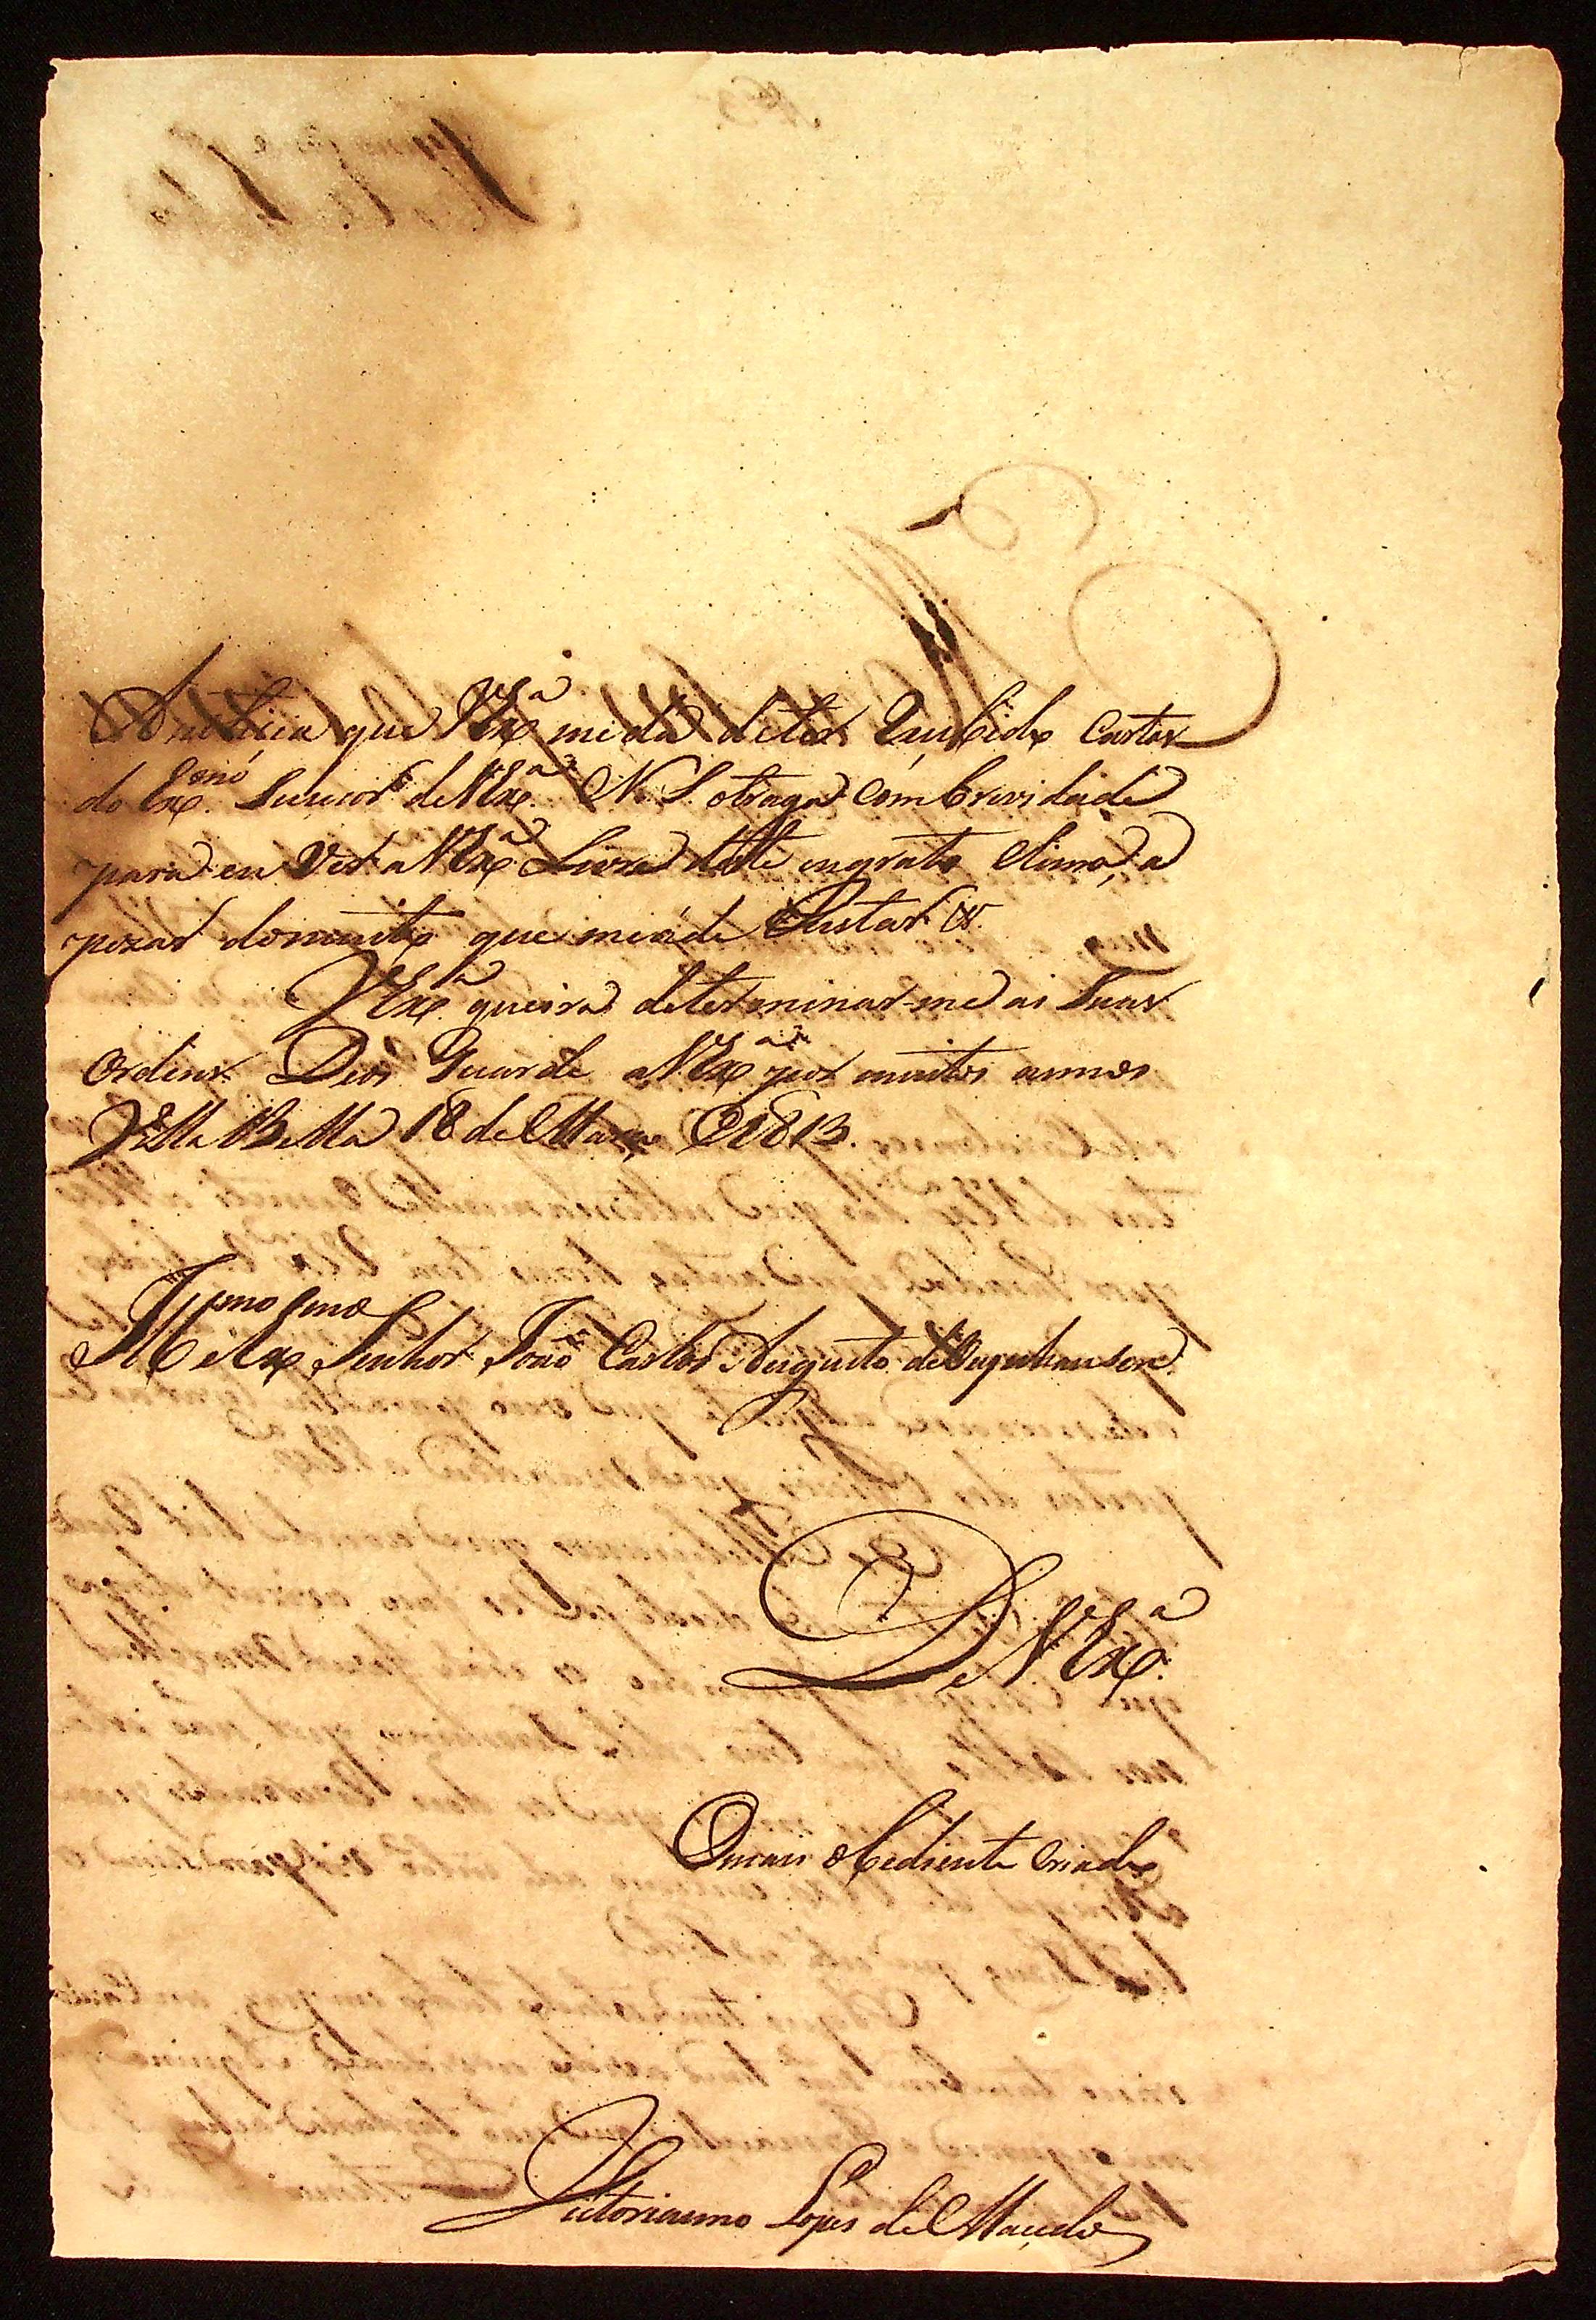 A noticia que VExª me dá de ter Recebido Cartas
do Exmo Sucesor de VExª N. S. o traga com brevidade
para eu Ver a VExª Livre deste ingrato Clima, a
pezar do muito que me áde Custar &.
VExª queira determinar-me as Suas
Ordens. Deos Guarde a VExª por muitos annos
Villa Bella 18 de Março 1813.
Illmo e Exmo Senhor João Carlos Augusto de Oeynhausen
De VExª
O mais obediente Criado
Victorianno Lopes de Macedo